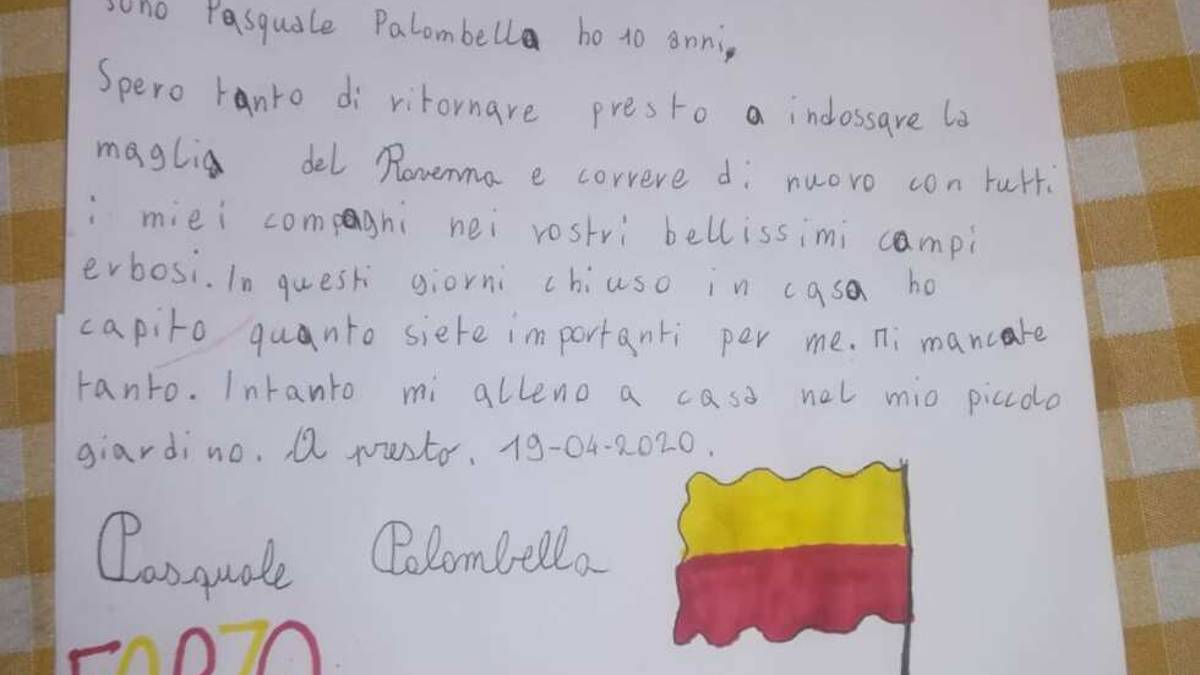 sono Pasquale Palombella ho 10 anni,
Spero tanto di ritornare presto a indossare la
maglia del Ravenna e correre di nuovo con tutti
i miei compaghi nei vostri bellissimi campi
erbosi. In questi giorni chiuso in casa ho
capito quanto siete importanti per me. Mi mancate
tanto. Intanto mi alleno a casa nel mio piccolo
giardino. A presto. 19-04-2020.
Pasquale Palombella
FORZA